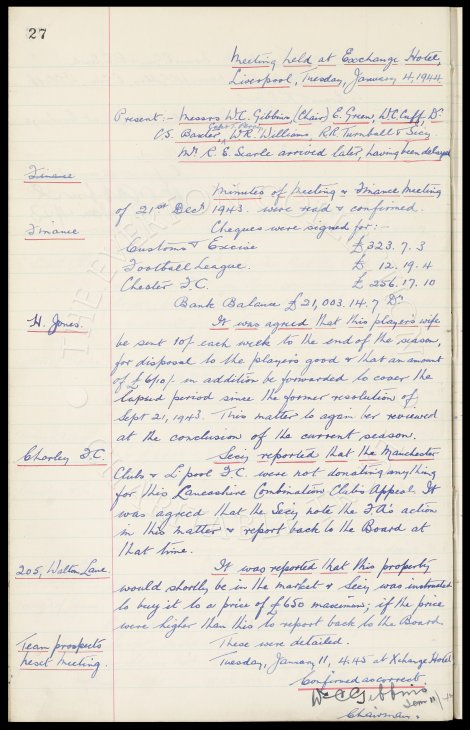 27
Meeting held at Exchange Hotel,
Liverpool, Tuesday, January 4, 1944
Present:- Messrs W.C. Gibbins, (Chair) E. Green, W.C. Cuff, Dr
C.S. Baxter, W.R. Williams, R.R. Turnbull & Secy.
Mr. R. E. Searle arrived later, having been delayed
Finance
Minutes of Meeting & Finance Meeting
of 21st Decr 1943. were read & confirmed.
Finance
Cheques were signed for:-
Customs & Excise £323. 7. 3
Football League. £ 12. 19. 4
Chester F.C. £ 256. 17. 10
Bank Balance £21,003. 14. 7 Dr
H. Jones.
It was agreed that this player's wife
be sent 10/- each week to the end of the season,
for disposal to the player's good & that an amount
of £6/10/- in addition be forwarded to cover the
lapsed period since the former resolution of
Sept 21, 1943. This matter to again be reviewed
at the conclusion of the current season.
Chorley F.C.
Secy reported that the Manchester
Clubs & L'pool F.C. were not donating anything
for this Lancashire Combination Club's Appeal. It
was agreed that the Secy note the F.A's action
in this matter & report back to the Board at
that time.
205, Walton Lane.
It was reported that this property
would shortly be in the market & Secy was instructed
to buy it to a price of £650 maximum; if the price
were higher than this to report back to the Board.
Team prospects
These were detailed.
next meeting.
Tuesday, January 11, 4.45 at Xchange Hotel
Confirmed as correct
W C Gibbins
Chairman.